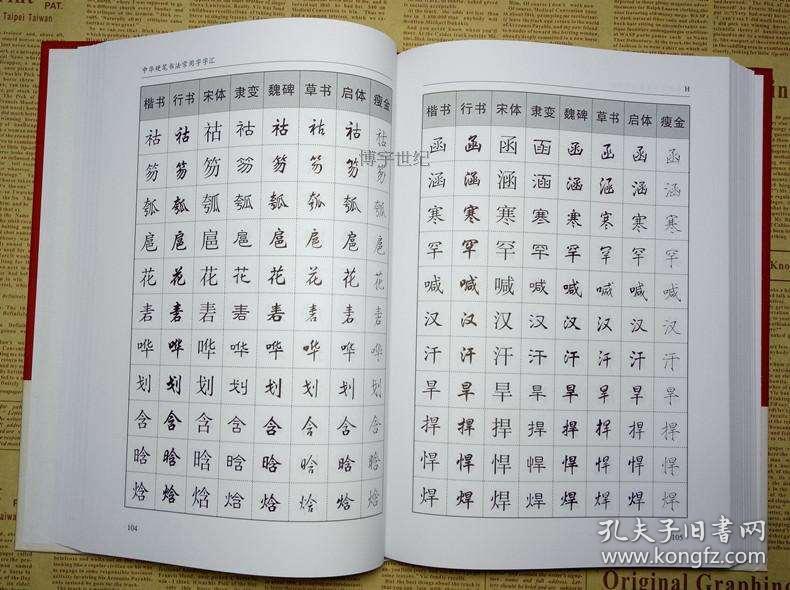 PAT.
Taipei Taiwan
中华硬笔书法常用字字汇
楷书 行书 宋体 隶变 魏碑 草书 启体 瘦金
祜 祜 祜 祜 祜 祜 祜 祜
笏 笏 笏 笏 笏 笏 笏 笏
瓠 瓠 瓠 瓠 瓠 瓠 瓠 瓠
扈 扈 扈 扈 扈 扈 扈 扈
花 花 花 花 花 花 花 花
砉 砉 砉 砉 砉 砉 砉 砉
哗 哗 哗 哗 哗 哗 哗 哗
划 划 划 划 划 划 划 划
含 含 含 含 含 含 含 含
晗 晗 晗 晗 晗 晗 晗 晗
焓 焓 焓 焓 焓 焓 焓 焓
104
H
楷书 行书 宋体 隶变 魏碑 草书 启体 瘦金
函 函 函 函 函 函 函 函
涵 涵 涵 涵 涵 涵 涵 涵
寒 寒 寒 寒 寒 寒 寒 寒
罕 罕 罕 罕 罕 罕 罕 罕
喊 喊 喊 喊 喊 喊 喊 喊
汉 汉 汉 汉 汉 汉 汉 汉
汗 汗 汗 汗 汗 汗 汗 汗
旱 旱 旱 旱 旱 旱 旱 旱
捍 捍 捍 捍 捍 捍 捍 捍
悍 悍 悍 悍 悍 悍 悍 悍
焊 焊 焊 焊 焊 焊 焊 焊
105
博宇世纪
孔夫子旧书网
www.kongfz.com
Original Graphing